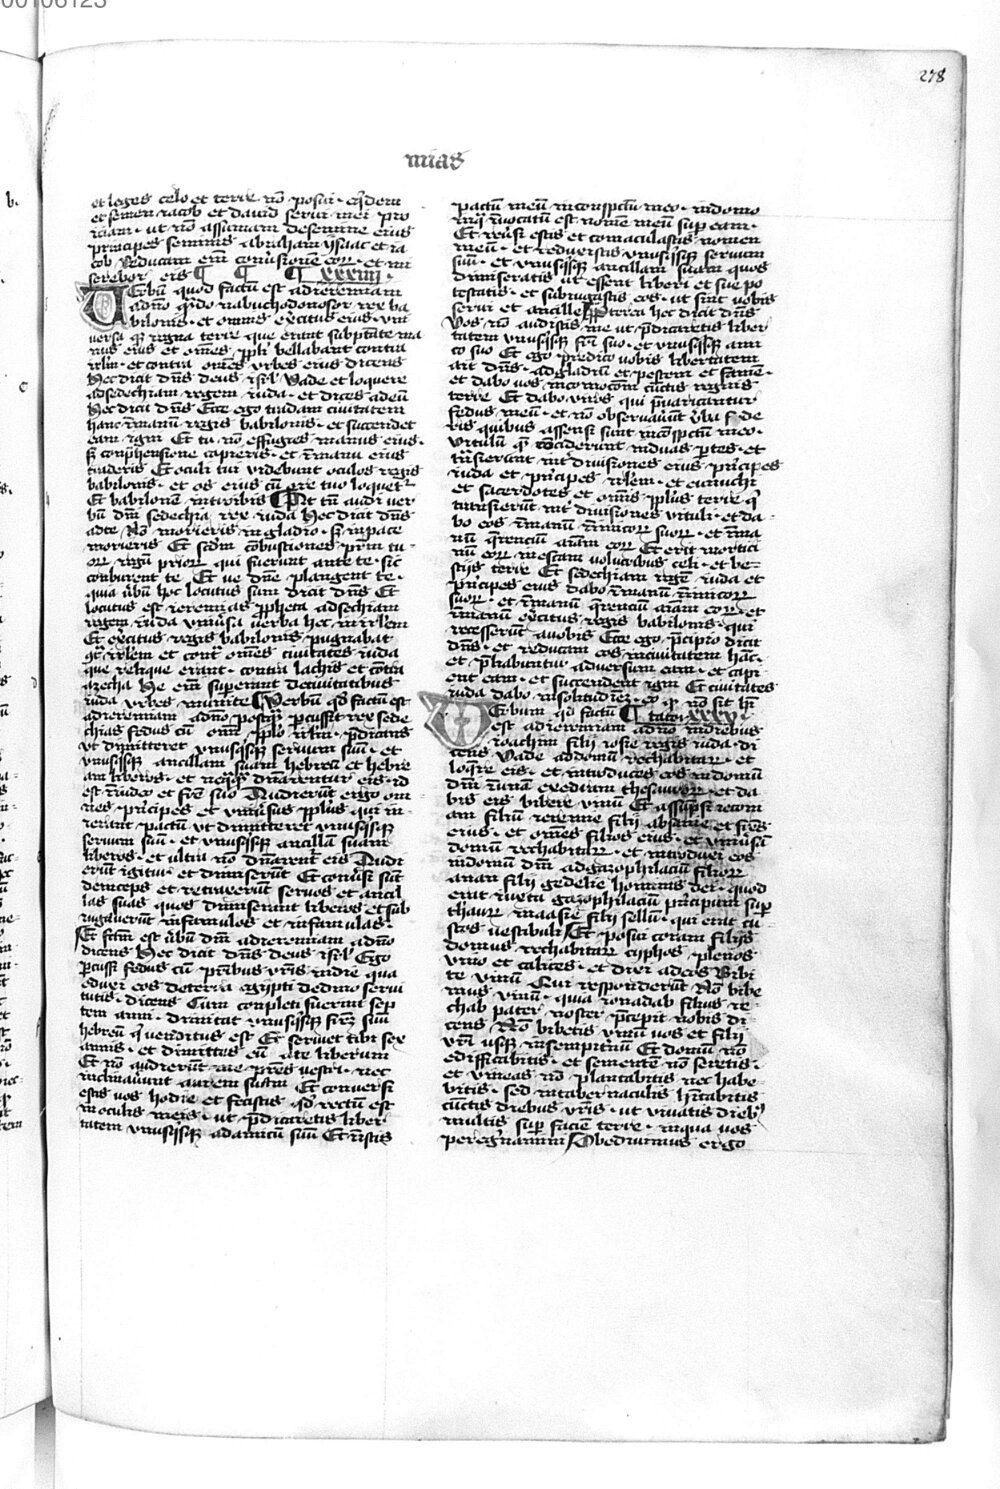 278
mias
et leges celo et terre nō posui · equidem
et semen iacob et dauid serui mei pro
iciam · ut nō assumam de semine eius
principes seminis abraham ysaac et ia
cob Reducam em̄ conūsionem eoꝝ · et mi
serebor eis ¶ ¶ ¶ xxxiiii ·
UErbū quod factū est ad ieremiam
a dn̄o qn̄do nabuchodonosor rex ba
bilonis · et omnis ex̄citus eius · uni
uersa qꝫ regna terre que erant sub ptāte ma
nus eius et om̄es pp̄li bellabant contra
irl̄m · et contra om̄es urbes eius dicens
Hec dicit dn̄s deus isr̄l Vade et loquere
ad sedechiam regem iuda · et dices ad eū
Hec dicit dn̄s Ecce ego tradam ciuitatem
hanc ī manū regis babilonis · et succendet
eam igni Et tu nō effugies manus eius ·
sꝫ conp̄hensione capieris · et ī manu eius
traderis Et oculi tui videbunt oculos regis
babilonis · et os eius cū ore tuo loquetᷣ
Et babilonē introibis At tn̄ audi ver
bū dn̄i sedechia rex iuda Hec dicit dn̄s
ad te Nō morieris in gladio · sꝫ in pace
morieris Et scd̄m cōbustiones pr̄m tu
oꝝ regū prioꝝ qui fuerunt ante te · sic
conburent te Et ue dn̄e plangent te ·
quia ūbū hoc locutus sum dicit dn̄s Et
locutus est ieremias ppheta ad sechiam
regem iuda vniūsa uerba hec in irl̄em
Et ex̄citus regis babilonis pugnabat
cōt̄ irl̄em et cont̄ om̄es ciuitates iuda
que relique erant · contra lachis et cōtra
azecha He em̄ superant de ciuitatibus
iuda vrbes munite Verbum qd̄ factū est
ad ieremiam a dn̄o postqᷓ percussit rex sede
chias fedus cū omi pp̄lo irl̄m · p̄dicans
vt dimitteret vnusqisqꝫ seruum suū · et
vnusqisqꝫ ancillam suam hebreū et hebre
am liberos · et neqᷓqᷓ dn̄arentur eis · id
est ī iudeo et fr̄e suo Audierūt ergo om
nes principes et vniūsus pp̄lus qui in
ierant pactū vt dimitteret vnusqisqꝫ
seruum suū · et vnusqisqꝫ ancillā suam
liberos · et ultra nō dn̄arent̄ eis Audi
erūt igitur et dimiserūt Et conūsi sūt
deinceps et retraxerūt seruos et ancil
las suas quos dimiserant liberos et sub
iugauerūt in famulos et in famulas ·
Et fc̄m est ūbū dn̄i ad ieremiam a dn̄o
dicens Hec dicit dn̄s deus isr̄l Ego
p̄cussi fedus cū pr̄ibus vr̄is in die qua
eduxi eos de terra egypti de domo serui
tutis · dicens Cum conpleti fuerint sep
tem anni · dimittat vnusqisqꝫ fr̄eꝫ suū
hebreū qͥ venditus est Et seruiet tibi sex
annis · et dimittes eū a te liberum
Et nō audierūt me pr̄es vestri · nec
inclinauūnt aurem suam Et conuersi
estis vos hodie et fecistis qd̄ rectū est
in oculis meis · ut p̄dicaretis liber
tatem vnusqisqꝫ ad amicū suū Et inistis
pactū meū in conspctū meo · in domo
in qͣ īuocatū est nomē meū sup eam ·
Et reūsi estis et comaculastis nomen
meū · et reduxistis vnusqisqꝫ seruum
suū · et vnusqisqꝫ ancillam suam quos
dimiseratis ut essent liberi et sue po
testatis · et subiugastis eos · ut sint vobis
serui et ancille Ppterea hec dicit dn̄s
Vos nō audistis me ut p̄dicaretis liber
tatem vnusqisqꝫ fr̄i suo · et vnusqisqꝫ ami
co suo Et ego predico vobis libertatem
ait dn̄s · ad gladiū et pestem et famē ·
et dabo vos in cōmotōem cūctis regnis
terre Et dabo viros qui p̄uaricantur
fedus meū · et nō obseruauūt ūba fede
ris quibus assensi sunt in cōspctū meo ·
vitulū quē cōciderunt in duas p̄tes · et
trāsierunt int̄ diuisiones eius pricipes
iuda et pricipes irl̄em · et eunuchi
et sacerdotes et om̄is pp̄lus terre qͥ
transierūt int̄ diuisiones vituli · et da
bo eos ī manū īimicoꝝ suoꝝ · et ī ma
nū q̄rentiū aīam eoꝝ Et erit mortici
nū eoꝝ in escam volucribus celi · et be=
stijs terre Et sedechiam regē iuda et
pricipes eius dabo ī manū īimicoꝝ
suoꝝ · et ī manū q̄rentiū aīam eoꝝ · et
ī manū ex̄cituū regis babilonis · qui
recesserūt a uobis Ecce ego p̄cipio dicit
dn̄s · et reducam eos in ciuitatem hāc ·
et p̄liabuntur aduersum eam · et capi
ent eam · et succendent igni Et ciuitates
iuda dabo in solitudīeꝫ · eo qꝫ nō sit hi
VErbum qd̄ factū ¶ tator xxxv ·
est ad ieremiam a dn̄o in diebus
ioachim filij iosie regis iuda · di
cens Vade ad domū rechabitaꝝ · et
loqͣre eis · et introduces eos in domū
dn̄i in vnam exedram thesauroꝝ · et da
bis eis bibere vinū Et assūpsi iecom
am filiū ieremie filij absanie et fr̄es
eius · et om̄es filios eius · et vniūsā
domū rechabitaꝝ · et introduxi eos
in domū dn̄i ad gazophilaciū filioꝝ
anan filij gedelie hominis dei · quod
erat iuxta gazophilaciū pricipum sup
thauꝝ maasie filij sellū · qui erat cu
stos vestibuli Et posui coram filijs
domus rechabitaꝝ cyphos plenos
vino et calices · et dixi ad eos Bibi
te vinū Qui responderūt Nō bibe
mus vinū · quia ionadab filius re
chab pater noster p̄cepit nobis di
cens Nō bibetis vinū uos et filij
vr̄i usqꝫ in sempitnū Et domū nō
edifficabitis · et sementē nō seretis ·
et vineas nō plantabitis nec habe=
bitis · sed in tabernaculis hītabitis
cūctis diebus vr̄is · ut viuatis dieb
multis sup faciē terre · in qua uos
peregrinamini Obediuimus ergo